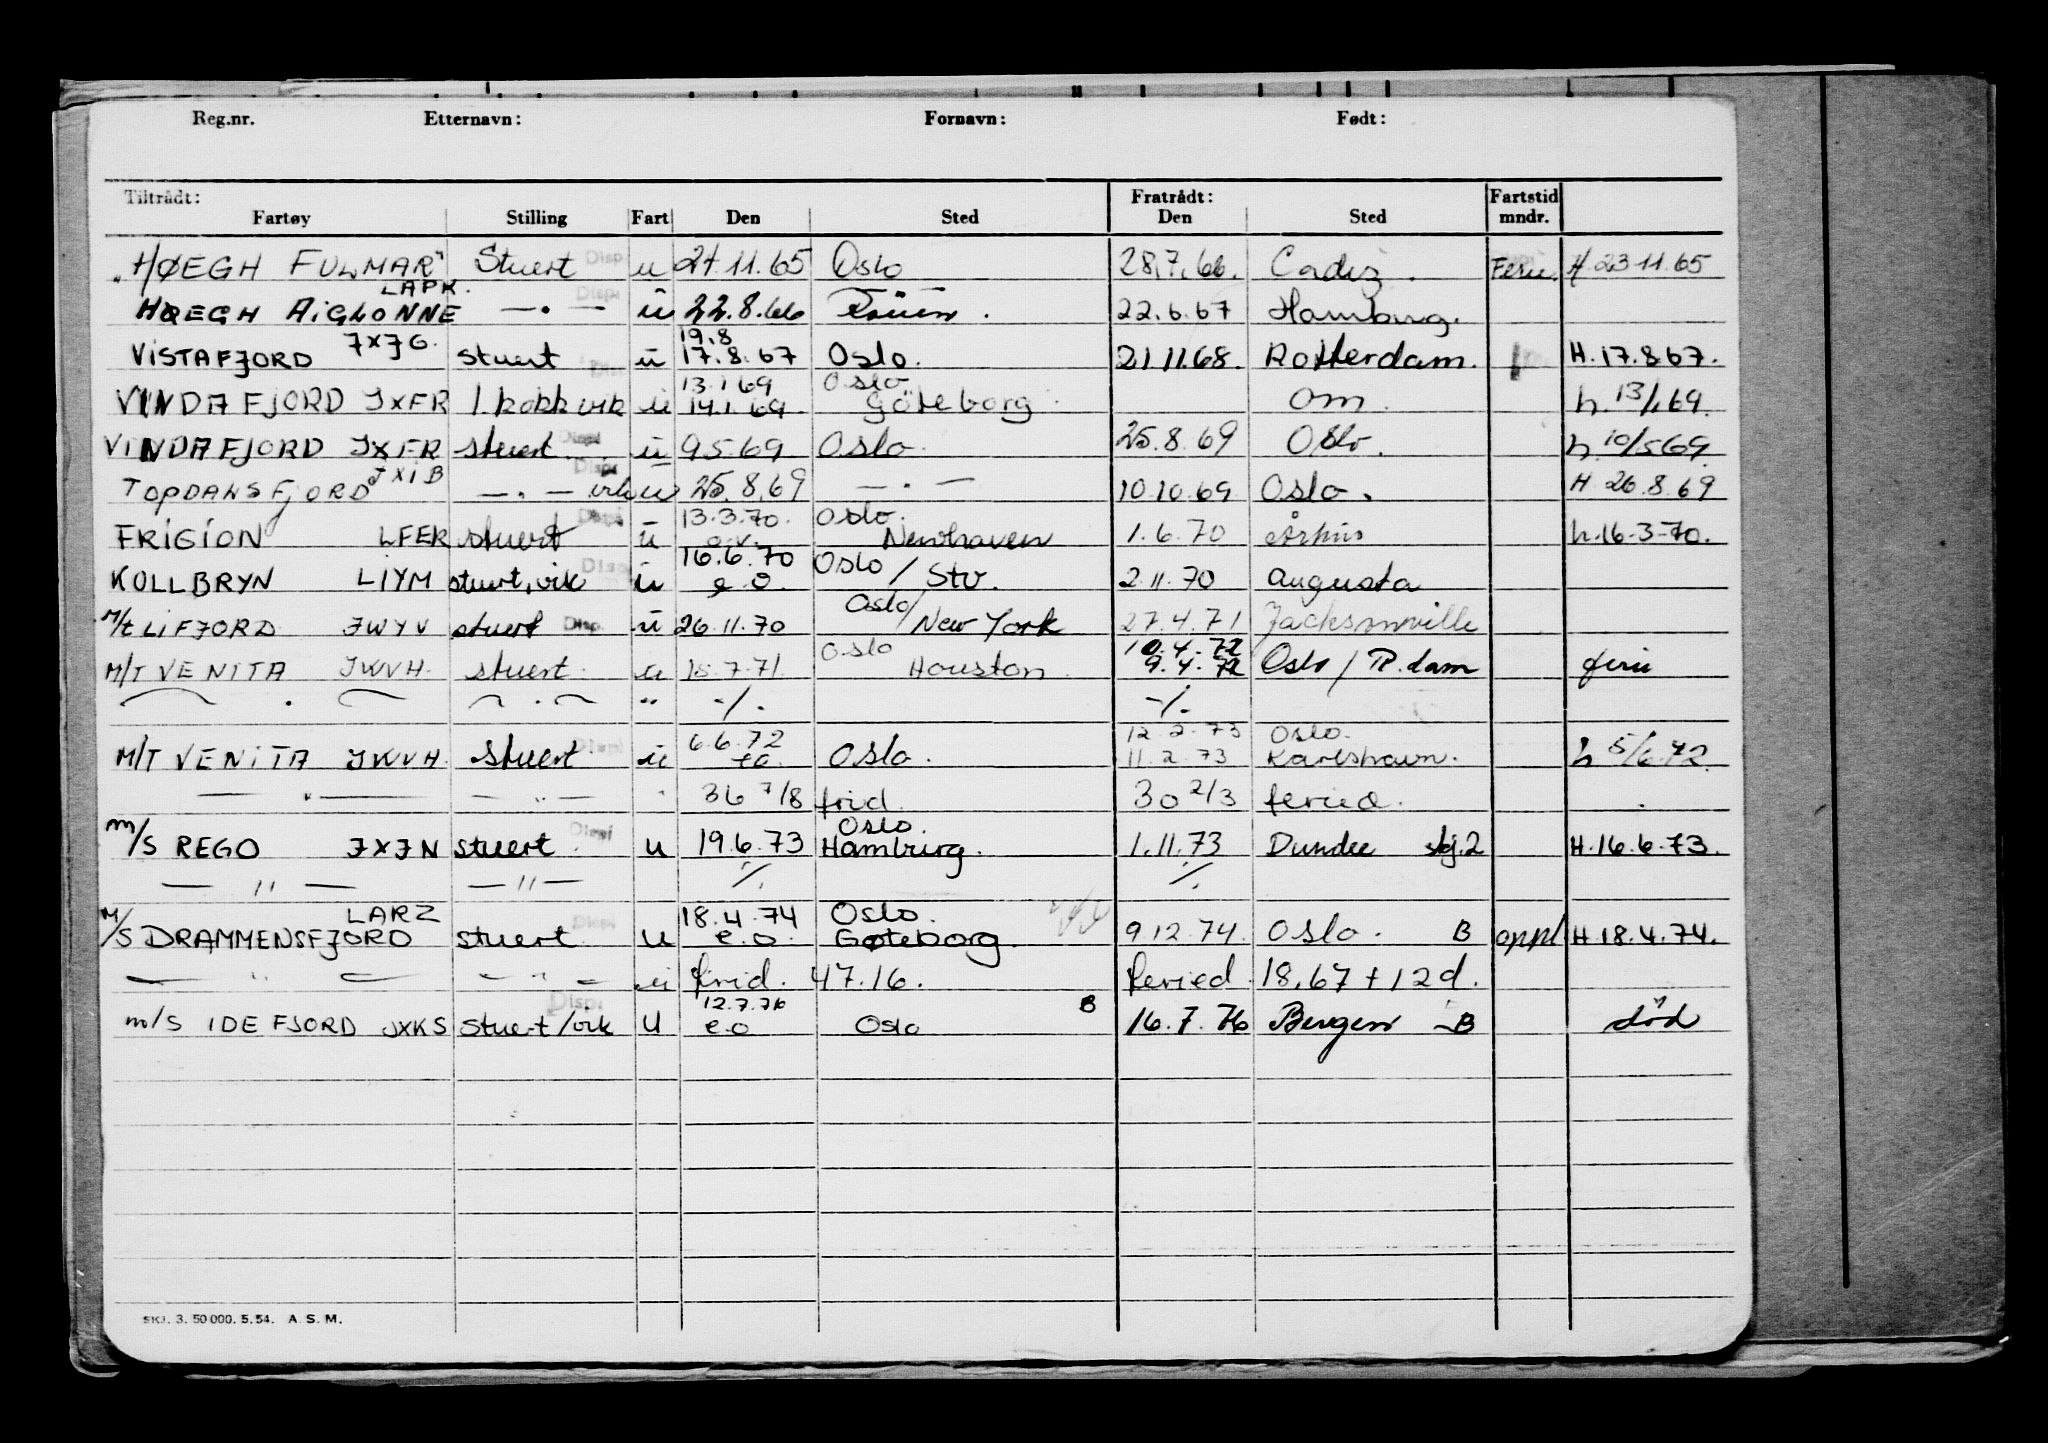 Reg.nr. Etternavn: Fornavn: Født:
Tiltrådt: Fratrådt: Fartstid
Fartøy Stilling Fart Den Sted Den Sted mndr.
"HØEGH FULMAR" Stuert Disp. u 27.11.65 Oslo 28.7.66. Cadiz. Ferie H. 23-11.65
LAPK.
HØEGH AIGLONNE —.— Disp. u 22.8.66 22.6.67 Hamburg.
19.8
VISTAFJORD JXJG. stuert u 17.8.67 Oslo. 21.11.68. Rotterdam. H.17.8.67.
13.1 69 Oslo
VINDAFJORD JXFR 1.kokk vik u 14.1.69. Göteborg. om. h. 13/1.69.
VINDAFJORD JXFR stuert. Disp. u 9.5.69 Oslo. 25.8.69 Oslo. h. 10/5 69.
TOPDANSFJORD JXIB —.— vik Disp. u 25.8.69 —.— 10.10.69 Oslo. H 26.8.69
13.3.70. Oslo.
FRIGION LFER stuert Disp. u Newhaven 1.6.70 Århus h.16-3-70.
16.6.70 Oslo
KOLLBRYN LIYM stuert, vik Disp. u e.o. / Stv. 2.11.70 Augusta
Oslo/
M/t LIFJORD JWYV stuert Disp. u 26.11.70 New York 27.4.71 Jacksonville
Oslo 10.4.72
M/T VENITA JWVH. stuert. u 15.7.71. Houston. 9.4.72 Oslo / R.dam ferie
— . — — . — " -/. -/.
6.6.72 12.2.73 Oslo.
M/T VENITA JWVH. stuert Disp. u Oslo. 11.2.73 Karlshavn. h 5/6.72.
— " — — " — " 36 7/8 frid. 30 2/3 feried.
Oslo.
M/S REGO JXJN stuert. Disp. u 19.6.73 Hamburg. 1.11.73 Dundee skj.2 H.16.6.73.
— " — — " — -/. -/.
LARZ 18.4.74 Oslo.
M/S DRAMMENSFJORD stuert. Disp. u e.o. Gøteborg. 9.12.74. Oslo. B oppl H.18.4.74.
— " — — " — u frid. 47.16. feried. 18,67 + 12 d.
12.7.76 B
m/s IDEFJORD JXKS stuert/vik Disp. u e.o Oslo 16.7.76 Bergen -B død
SKJ. 3. 50 000. 5. 54. A. S. M.